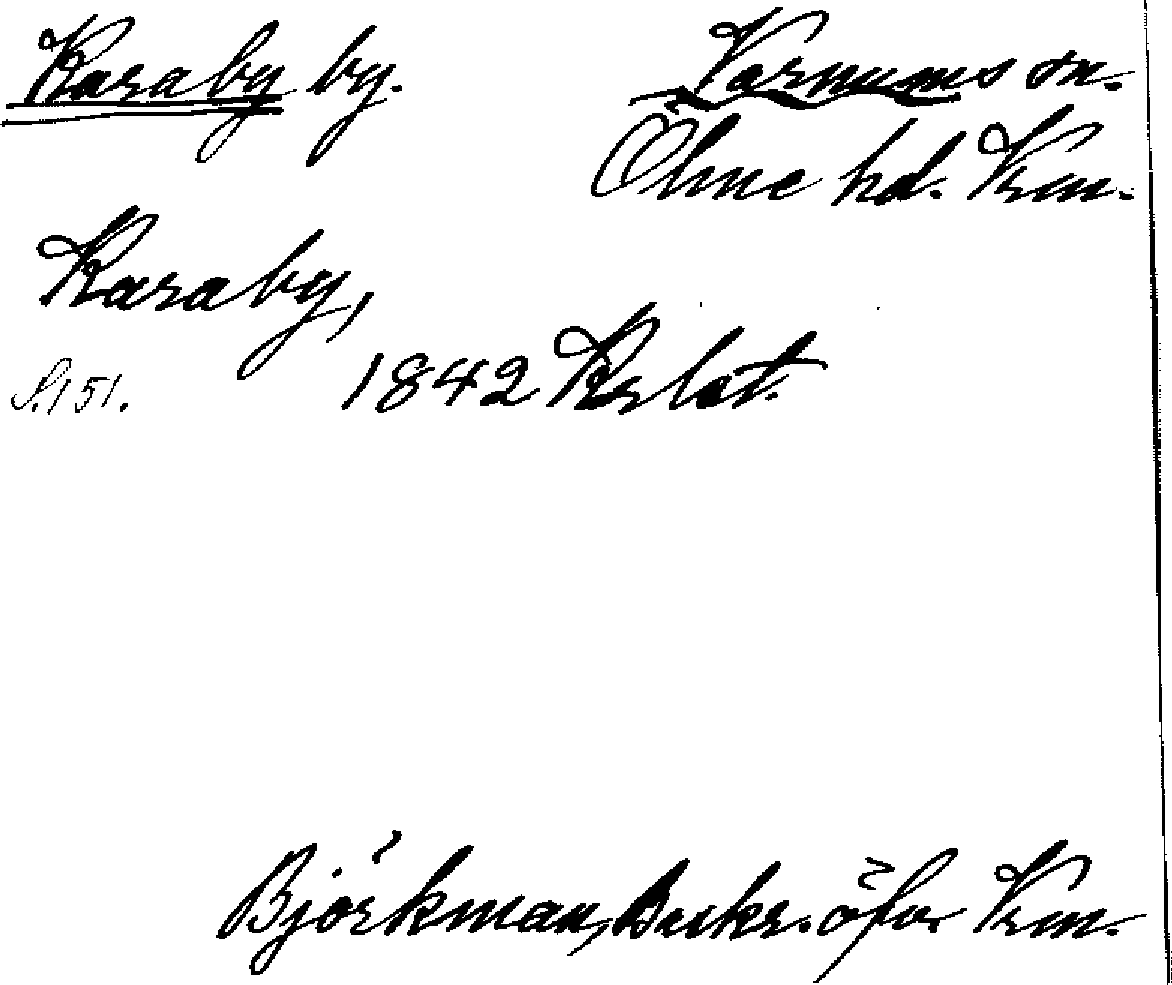 Karaby by.
Varnums sn.
Ölme hd. Vrm.
Karaby,
S. 151. 1842
Björkman, Beskr. öfver Vrm.